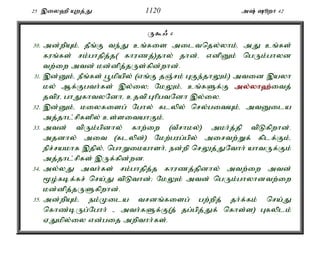 25 இலைஹி யுறத்து 1120 அஷ் ஷூறா 42
ருகூஃ 4
30. அன்றியும், தீங்கு வந்து உங்களை அடைவதெல்லாம், அது உங்கள்
கரங்கள் சம்பாதித்த( காரணத்)தால் தான், எனினும் பெரும்பாலான
வற்றை அவன் மன்னித்தருள்கின்றான்.
31. இன்னும், நீங்கள் பூமியில் (எங்கு தஞ்சம் புகுந்தாலும்,) அவனை இயலா
மல் ஆக்குபவர்கள் இல்லை; மேலும், உங்களுக்கு அல்லாஹ்வைத்
தவிர, பாதுகாவலனோ, உதவி புரிபவனோ இல்லை.
32. இன்னும், மலைகளைப் போல் கடலில் செல்பவையும், அவனுடைய
அத்தாட்சிகளில் உள்ளவையாகும்.
33. அவன் விரும்பினால் காற்றை (வீசாமல்) அமர்த்தி விடுகிறான்.
அதனால் அவை (கடலின்) மேற்பரப்பில் அசைவற்றுக் கிடக்கும்,
நிச்சயமாக இதில், பொறுமையாளர், நன்றி செலுத்துவோர் யாவருக்கும்
அத்தாட்சிகள் இருக்கின்றன.
34. அல்லது அவர்கள் சம்பாதித்த காரணத்தினால் அவற்றை அவன்
மூழ்கடிக்கச் செய்து விடுவான்; மேலும் அவன் பெரும்பாலானவற்றை
மன்னித்தருளுகிறான்.
35. அன்றியும், நம்முடைய வசனங்களைப் பற்றித் தர்க்கம் செய்து
கொண்டிருப்போர் - அவர்களுக்கு(த் தப்பித்துக் கொள்ள) புகலிடம்
ஏதுமில்லை என்பதை அறிவார்கள்.